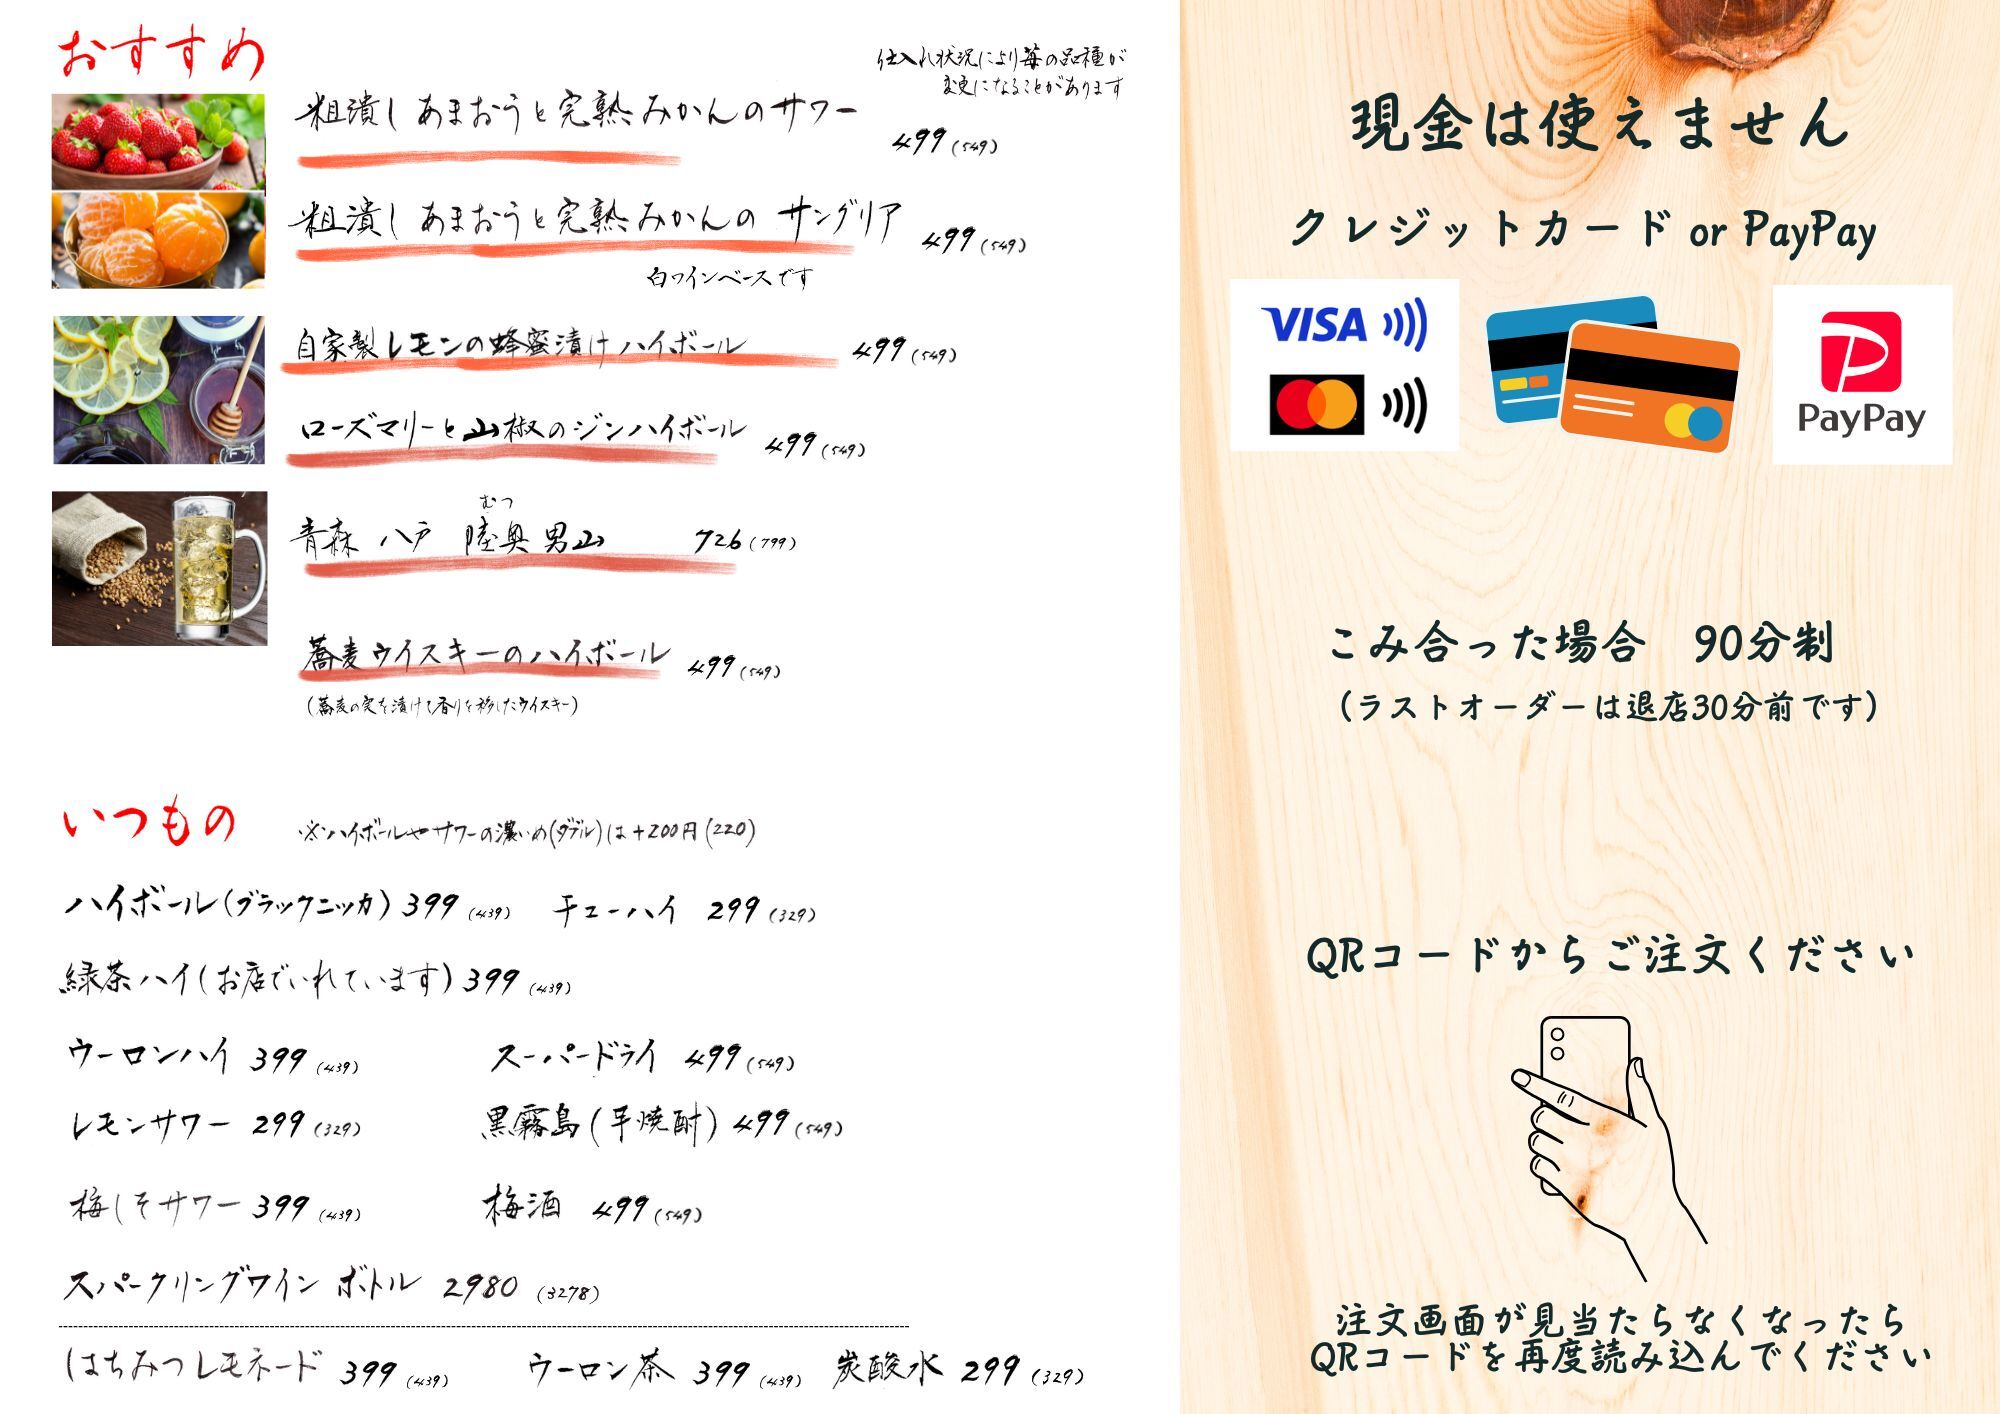 おすすめ
仕入れ状況により苺の品種が
変更になることがあります
粗潰し あまおうと完熟みかんのサワー 499(549)
粗潰し あまおうと完熟みかんの サングリア 499(549)
白ワインベースです
自家製レモンの蜂蜜漬けハイボール 499(549)
ローズマリーと山椒のジンハイボール 499(549)
むつ
青森 八戸 陸奥男山 726(799)
蕎麦ウイスキーのハイボール 499(549)
(蕎麦の実を漬けて香りを移したウイスキー)
いつもの ※ハイボールやサワーの濃いめ(ダブル)は+200円(220)
ハイボール(ブラックニッカ) 399(439) チューハイ 299(329)
緑茶ハイ(お店でいれています) 399(439)
ウーロンハイ 399(439) スーパードライ 499(549)
レモンサワー 299(329) 黒霧島(芋焼酎) 499(549)
梅しそサワー 399(439) 梅酒 499(549)
スパークリングワイン ボトル 2980(3278)
はちみつレモネード 399(439) ウーロン茶 399(439) 炭酸水 299(329)
現金は使えません
クレジットカード or PayPay
VISA
PayPay
こみ合った場合 90分制
(ラストオーダーは退店30分前です)
QRコードからご注文ください
注文画面が見当たらなくなったら
QRコードを再度読み込んでください